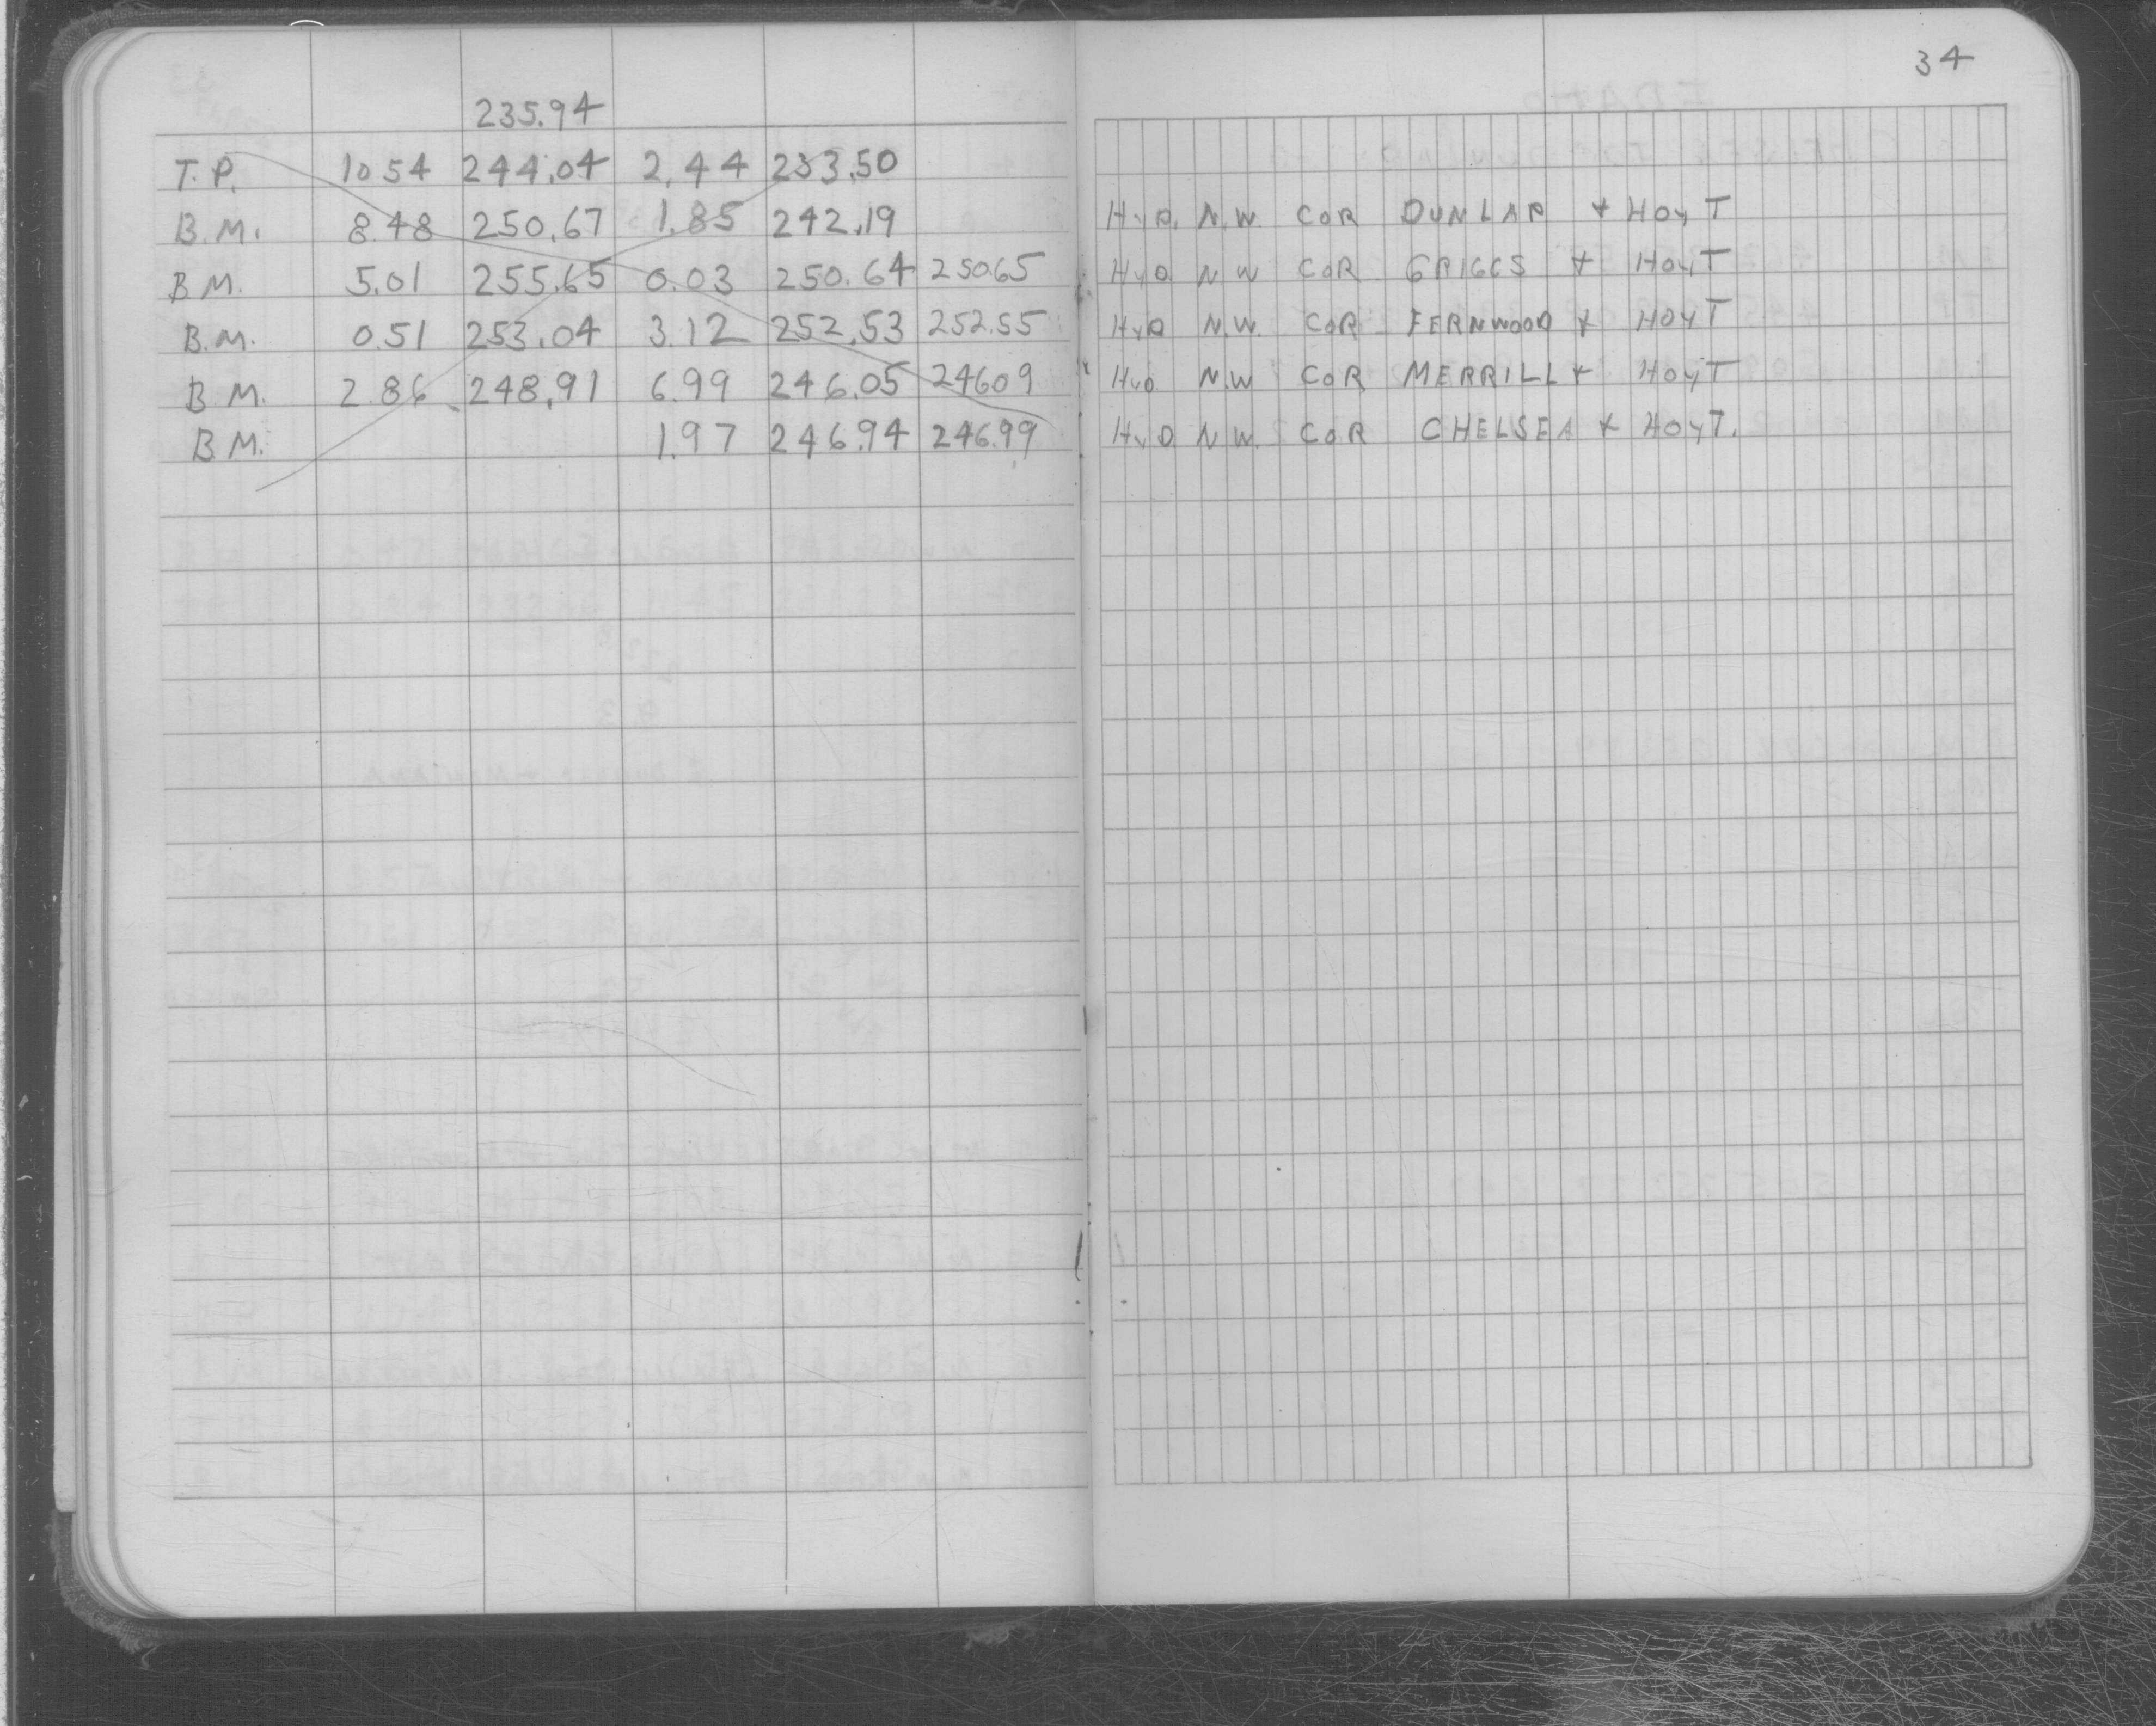 34
235.94
T.P. 10 54 244.04 2.44 233.50
B.M. 8.48 250.67 1.85 242.19 HYD. N.W. COR DUNLAP & HOYT
B M. 5.01 255.65 0.03 250.64 250.65 HYD N W COR GRIGGS & HOYT
B.M. 0.51 253.04 3.12 252.53 252.55 HYD N.W. COR FERNWOOD & HOYT
B M. 2 86 248.91 6.99 246.05 246 09 HYD N.W COR MERRILL & HOYT
B M. 1.97 246.94 246.99 HYD N W. COR CHELSEA & HOYT.